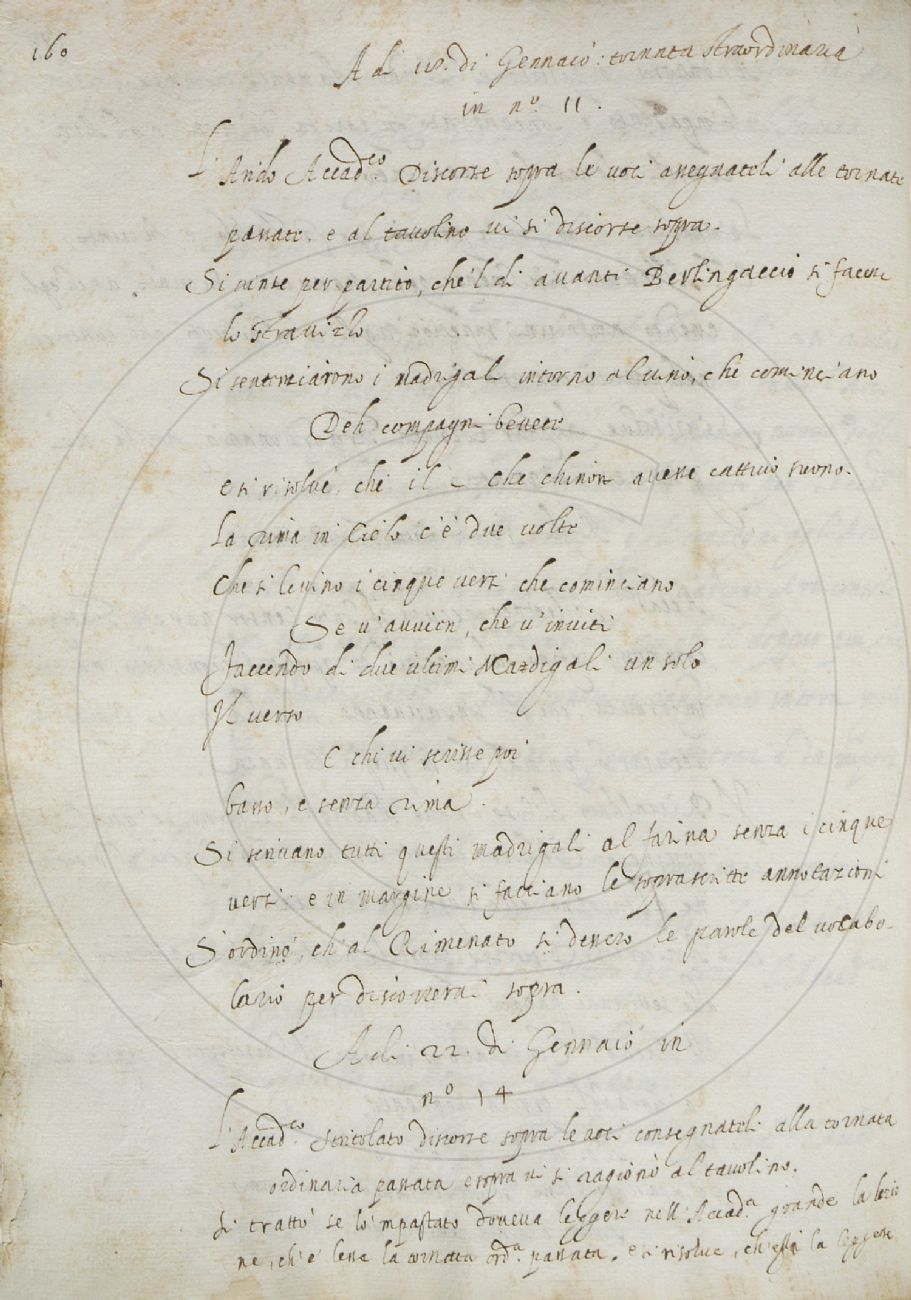 160
A di 18. di Gennaio: tornata straordinaria
in n.o 11.
L'Arido Accad.co Discorse sopra le voci asegnateli alle tornate
passate. e al tavolino vi si discorse sopra.
Si vinse per partito, che 'l dì avanti Berlingaccio si facesse
lo stravizzo
Si sentenziarono i madrigali intorno al vino, che cominciano
Deh compagni bevete
e si risolvé, che il che chi non avesse cattivo suono.
La rima in Cielo c'è due volte
Che si levino i cinque versi che cominciano
Se v'avvien, che v'inviti
Facendo di due ultimi Madrigali un solo
Il verso
E chi vi scrisse poi
basso, e senza rima.
Si scrivano tutti questi madrigali al farina senza i cinque
versi. e in margine si facciano le soprascritte annotazioni
S'ordinò, ch'al Rimenato si dessero le parole del vocabo-
lario per discorrervi sopra.
Adi 22. di Gennaio in
n.o 14
L'Accad.co Stritolato discorse sopra le voci consegnateli alla tornata
ordinaria passata e sopra vi si ragionò al tavolino.
Si trattò se lo 'mpastato doveva leggere nell'Accad.a grande la lezio
ne, ch'e' lesse la tornata ord.a passata. e si risolvé, ch'egli la leggesse